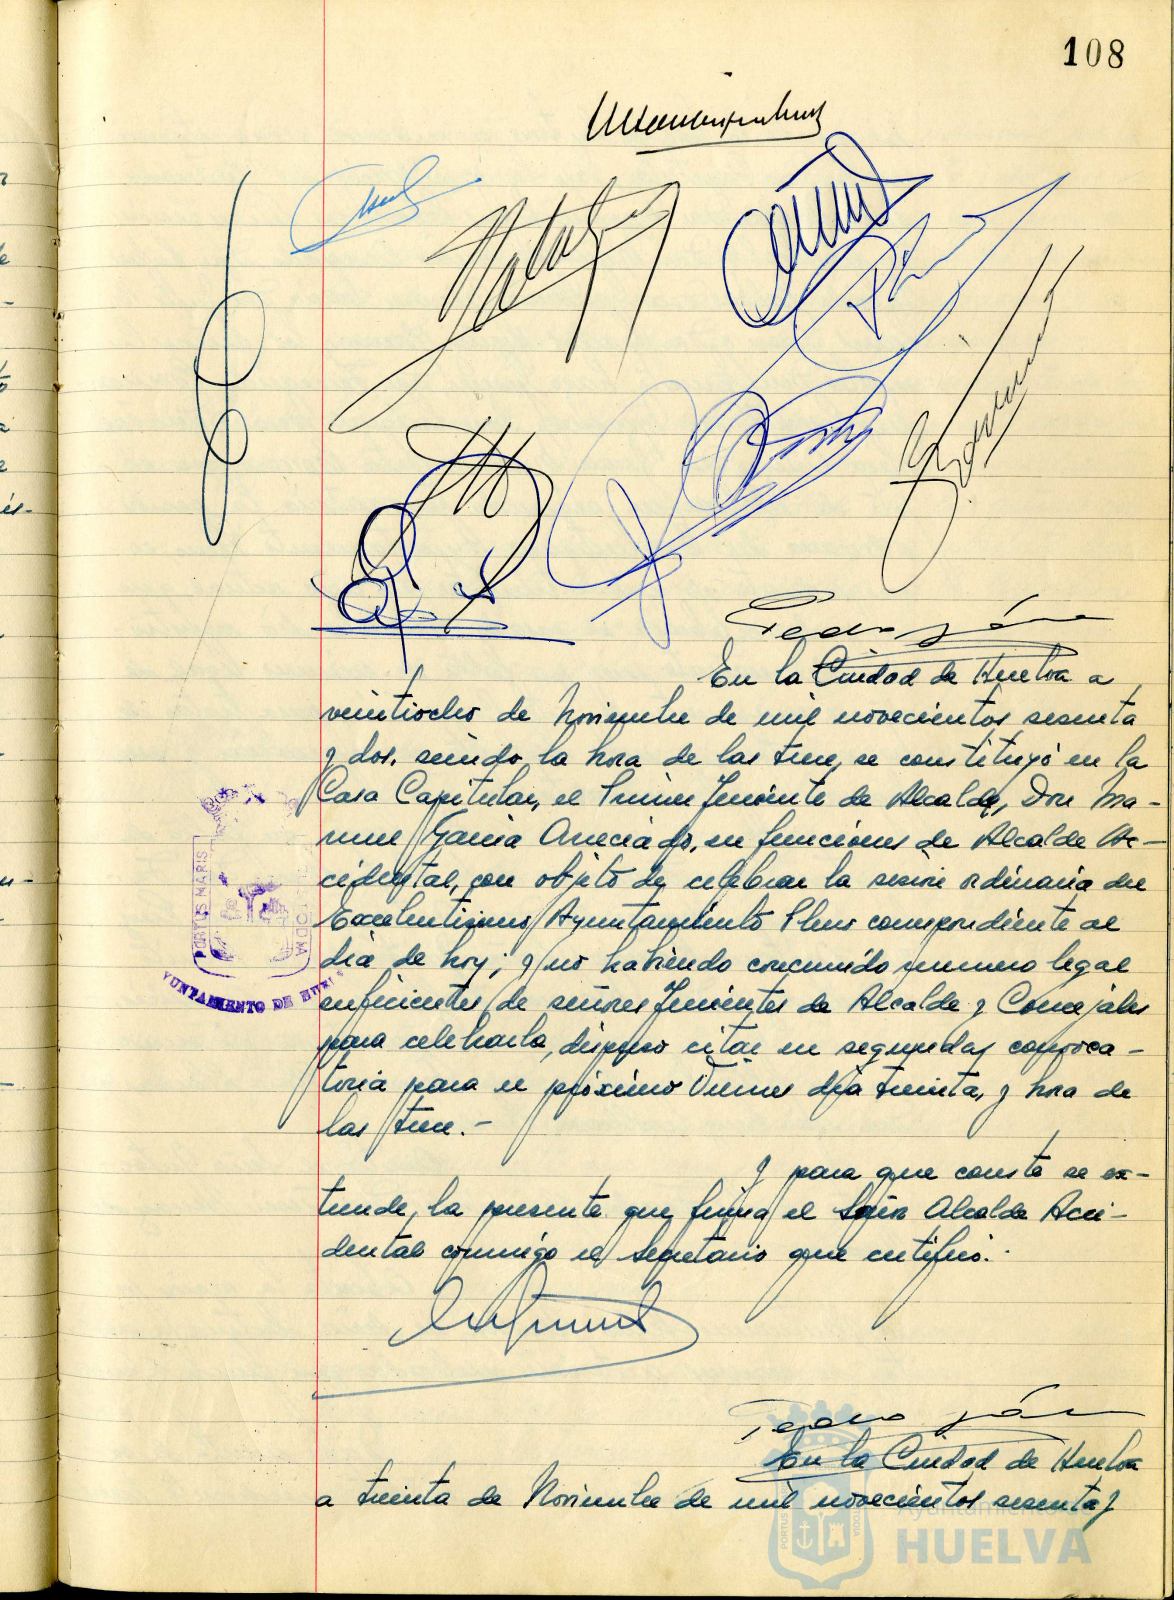 108
Pedro
En la Ciudad de Huelva a
veintiocho de Noviembre de mil novecientos sesenta
y dos, siendo la hora de las trece, se constituyó en la
Casa Capitular, el Primer Teniente de Alcalde, Don Ma-
nuel García en funciones de Alcalde Ac-
cidental, con objeto de celebrar la sesión ordinaria del
Excelentísimo Ayuntamiento Pleno correspondiente al
día de hoy; y no habiendo concurrido número legal
suficientes de señores Tenientes de Alcalde y Concejales
para celebrarla, dispuso citar en segunda convoca-
toria para el próximo Viernes día treinta, y hora de
las trece.-
Y para que conste se ex-
tiende, la presente que firma el Señor Alcalde Acci-
dental conmigo el Secretario que certifico.-
Pedro
En la Ciudad de Huelva
a treinta de Noviembre de mil novecientos sesenta y
PORTUS MARIS
AYUNTAMIENTO DE HUELVA
Ayuntamiento de
HUELVA